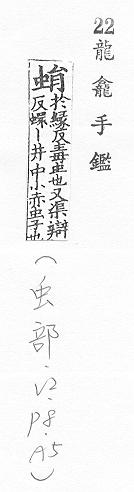 22 龍龕手鑑
蜎於緣反毒䖝也又渠辯
反蠉丨井中小赤虫子也
(虫部.V2.P8.A5)